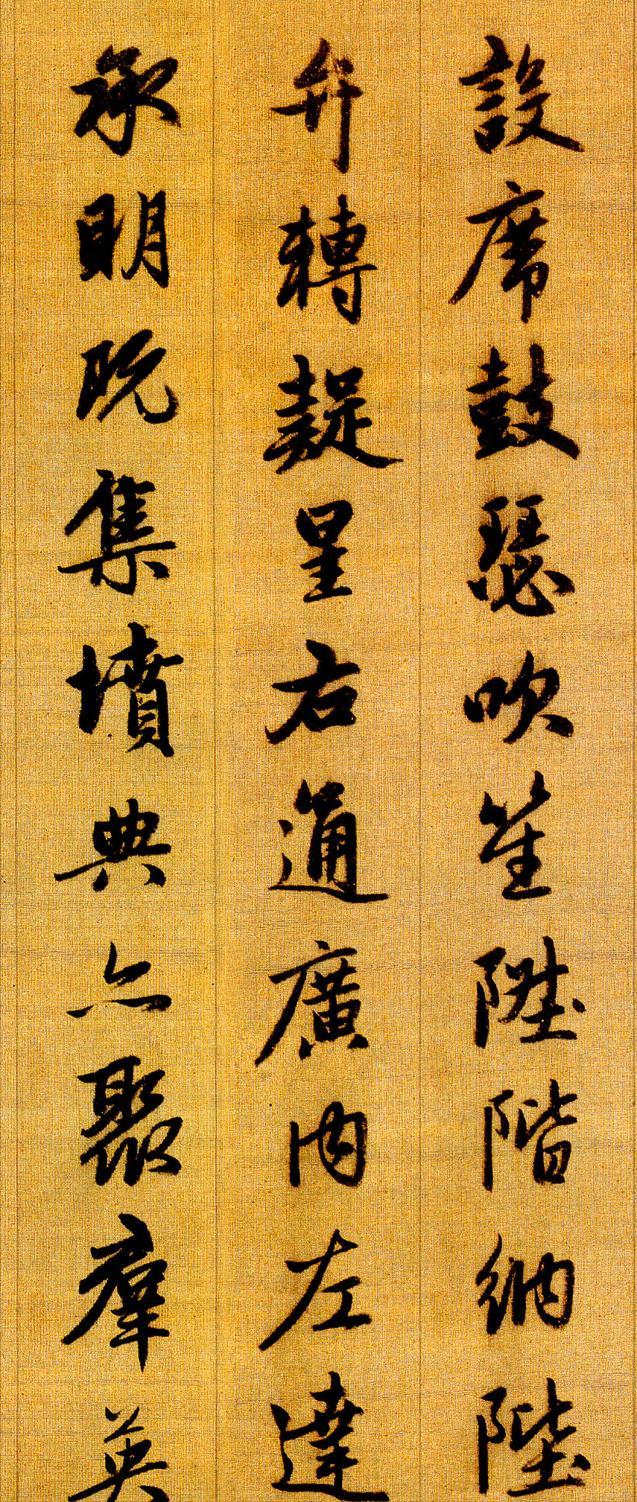 設席鼓瑟吹笙陞階納陛
弁轉疑星右通廣內左達
承明既集墳典亦聚羣英